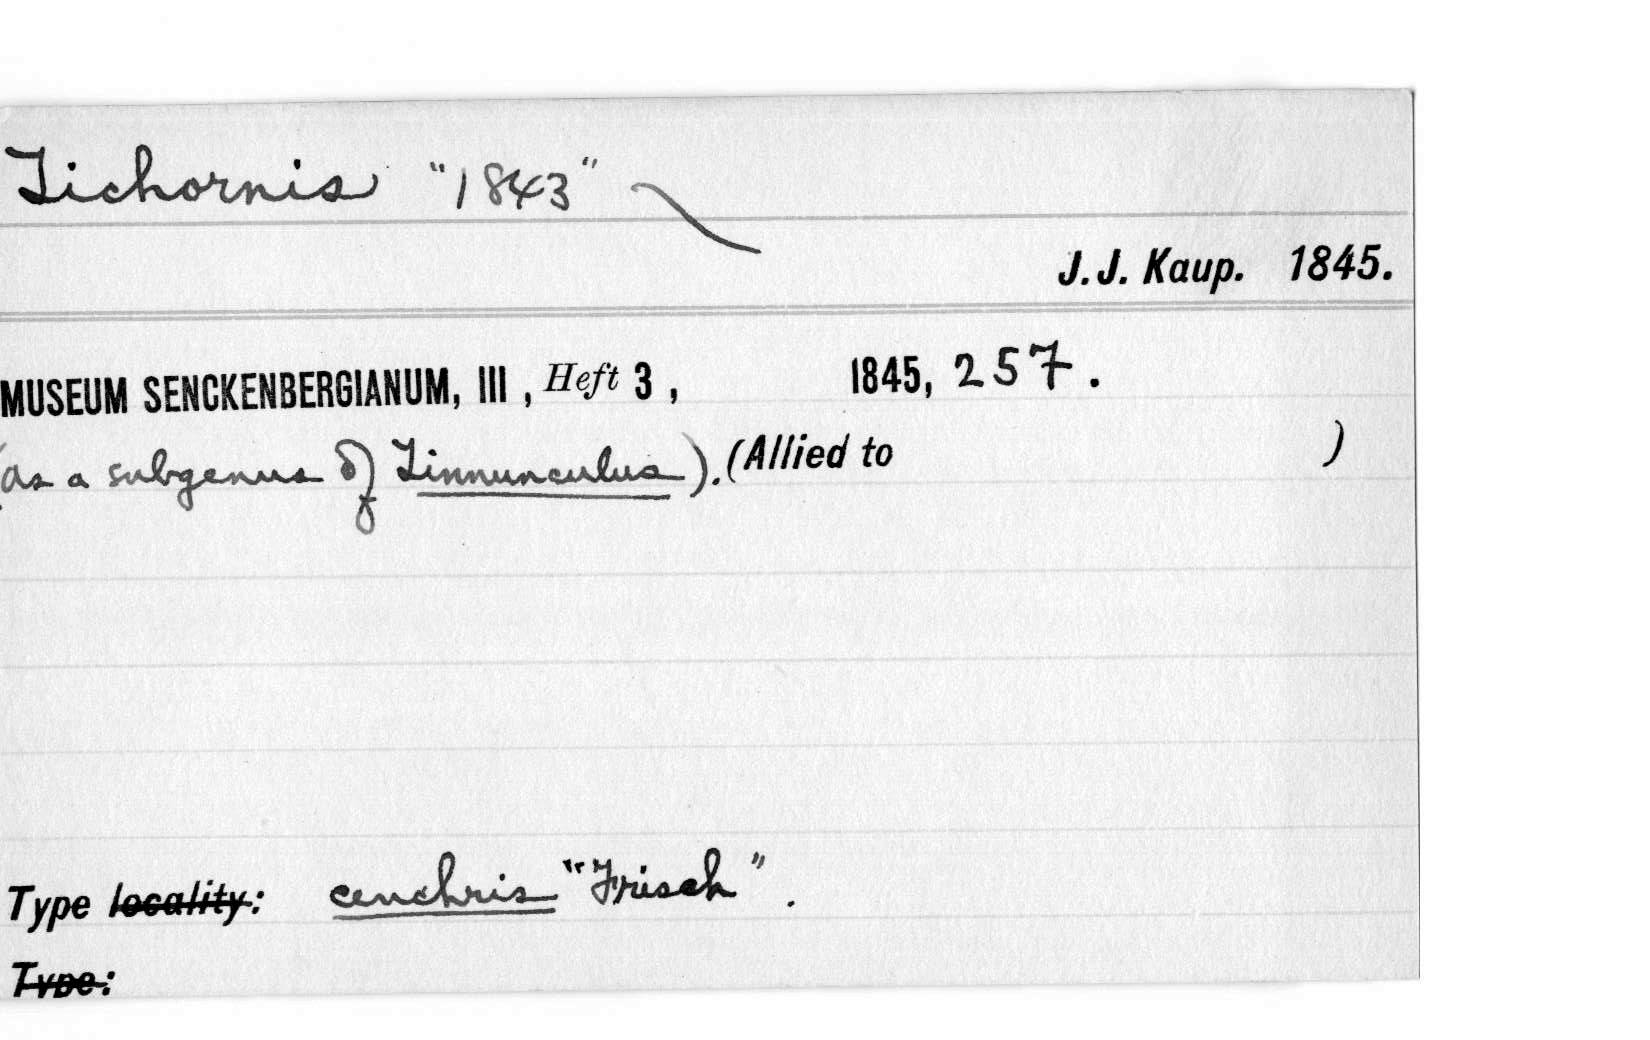 Tichornis "1843"
J. J. Kaup. 1845.
MUSEUM SENCKENBERGIANUM, III, Heft 3, 1845, 257.
(as a subgenus of Tinnunculus). (Allied to )
Type locality: cenchris "Frisch".
Type: